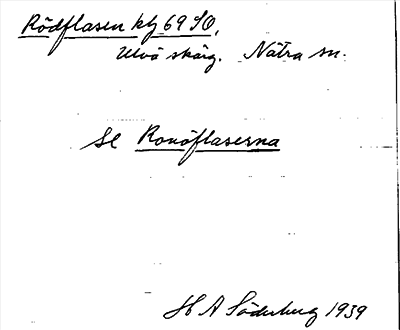 Rödflasen kbj 69 SO,
Ulvö skärg. Nätra sn.
Se Ronöflaserna
H A Söderberg 1939